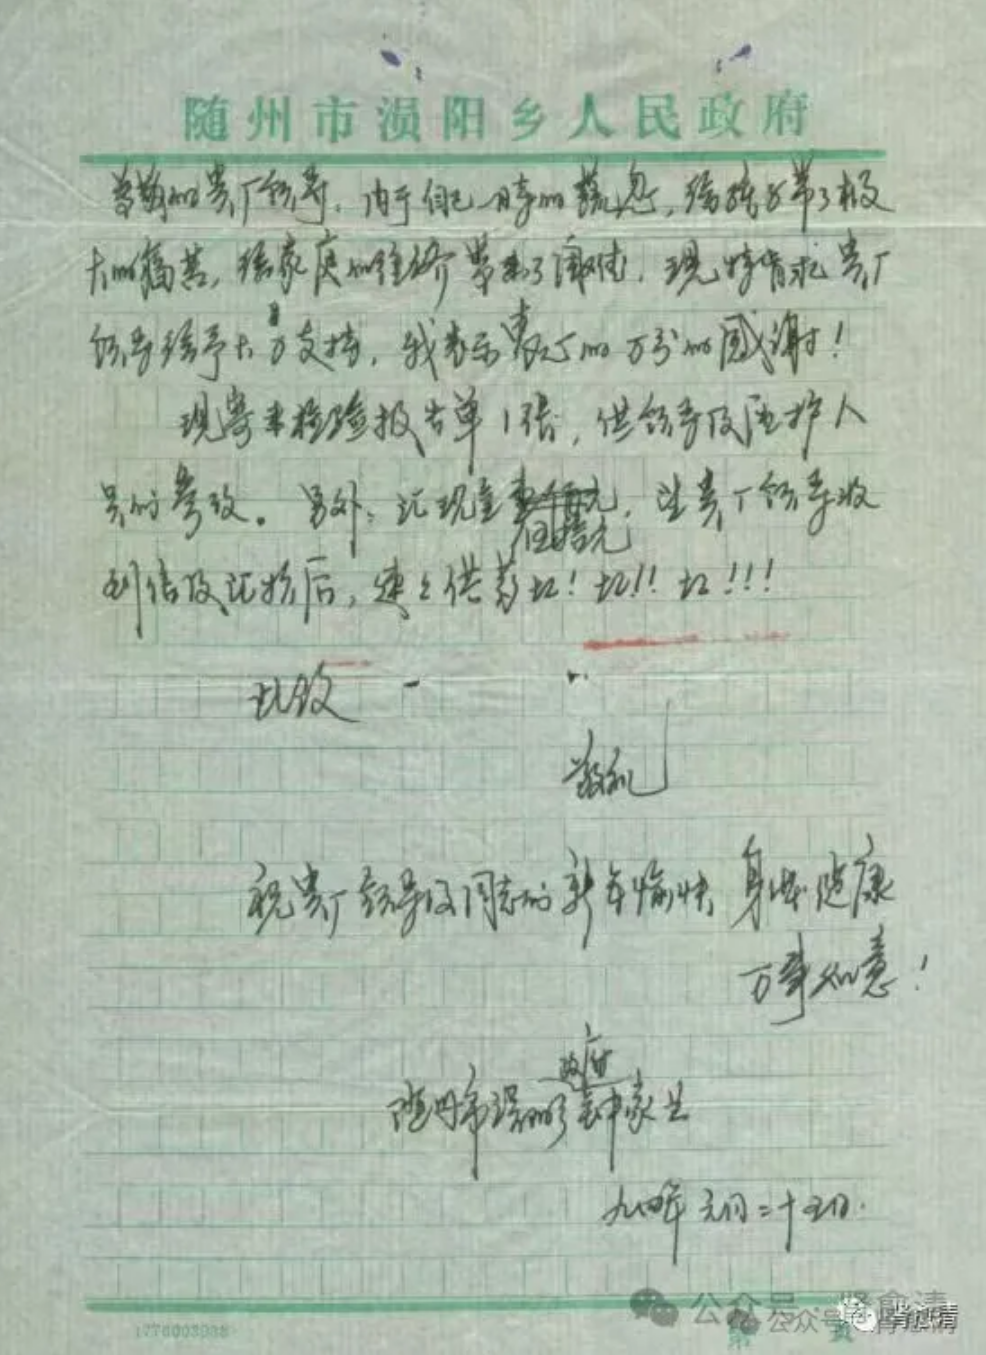 随州市涢阳乡人民政府
尊敬的贵厂领导,由于自己一时的疏忽,给转带了极
大的痛苦,给家庭的经济带来了困难,现特请求贵厂
领导给予大力支持,我表示衷心的万分的感谢!
现寄来检验报告单1张,供领导及医护人
员的参考。另外,汇现金 伍拾元,望贵厂领导收
到信及汇款后,速速供药为!
此致
敬礼
祝贵厂领导及同志们新年愉快,身体健康
万事如意!
随州市涢阳乡政府 钟家
九四年元月二十五日.
1776003938
公众号
公众号
肖愈清
第 页